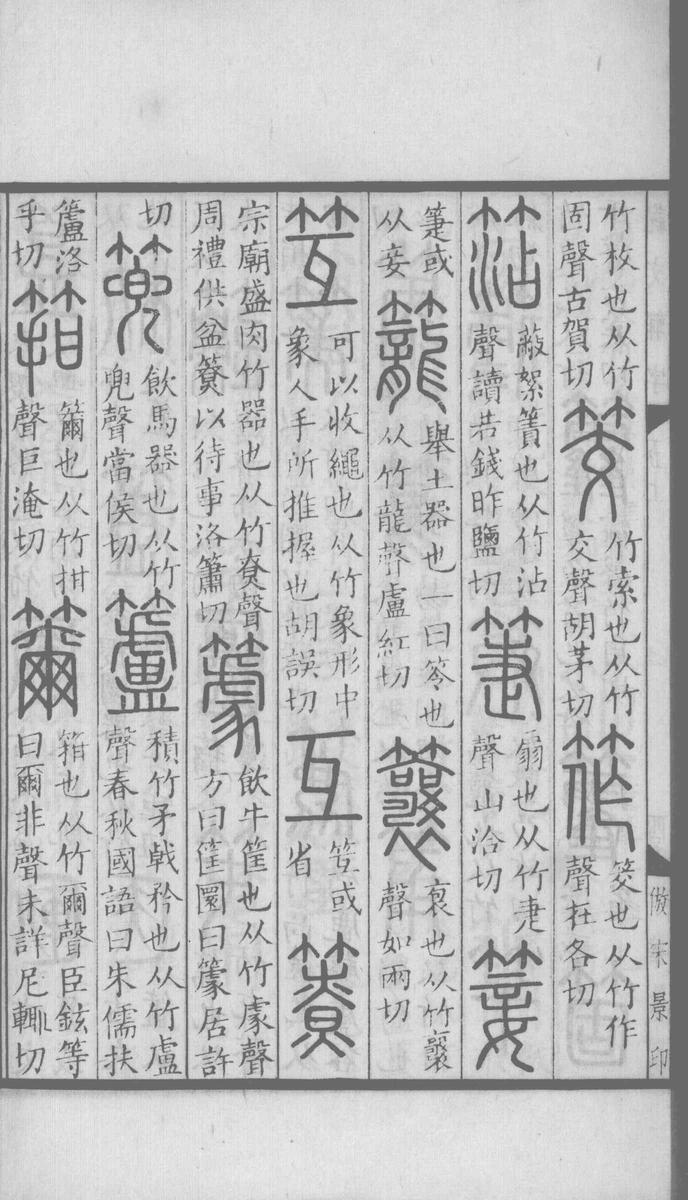 竹枚也从竹
固聲古賀切
筊
竹索也从竹
交聲胡茅切
筰
筊也从竹作
聲在各切
蔽絮簀也从竹沾
聲讀若錢昨鹽切
箑
扇也从竹疌
聲山洽切
箑或
从妾
籠
舉土器也一曰笭也
从竹龍聲盧紅切
䉴
裒也从竹襄
聲如兩切
可以收繩也从竹象形中
象人手所推握也胡誤切
互
或
省
簝
宗廟盛肉竹器也从竹尞聲
周禮供盆簝以待事洛簫切
飲牛筐也从竹豦聲
方曰筐圜曰居許
切
篼
飲馬器也从竹
兜聲當侯切
籚
積竹矛戟矜也从竹盧
聲春秋國語曰朱儒扶
籚洛
乎切
箝
籋也从竹拑
聲巨淹切
籋
箝也从竹爾聲臣鉉等
曰爾非聲未詳尼輒切
倣宋景印